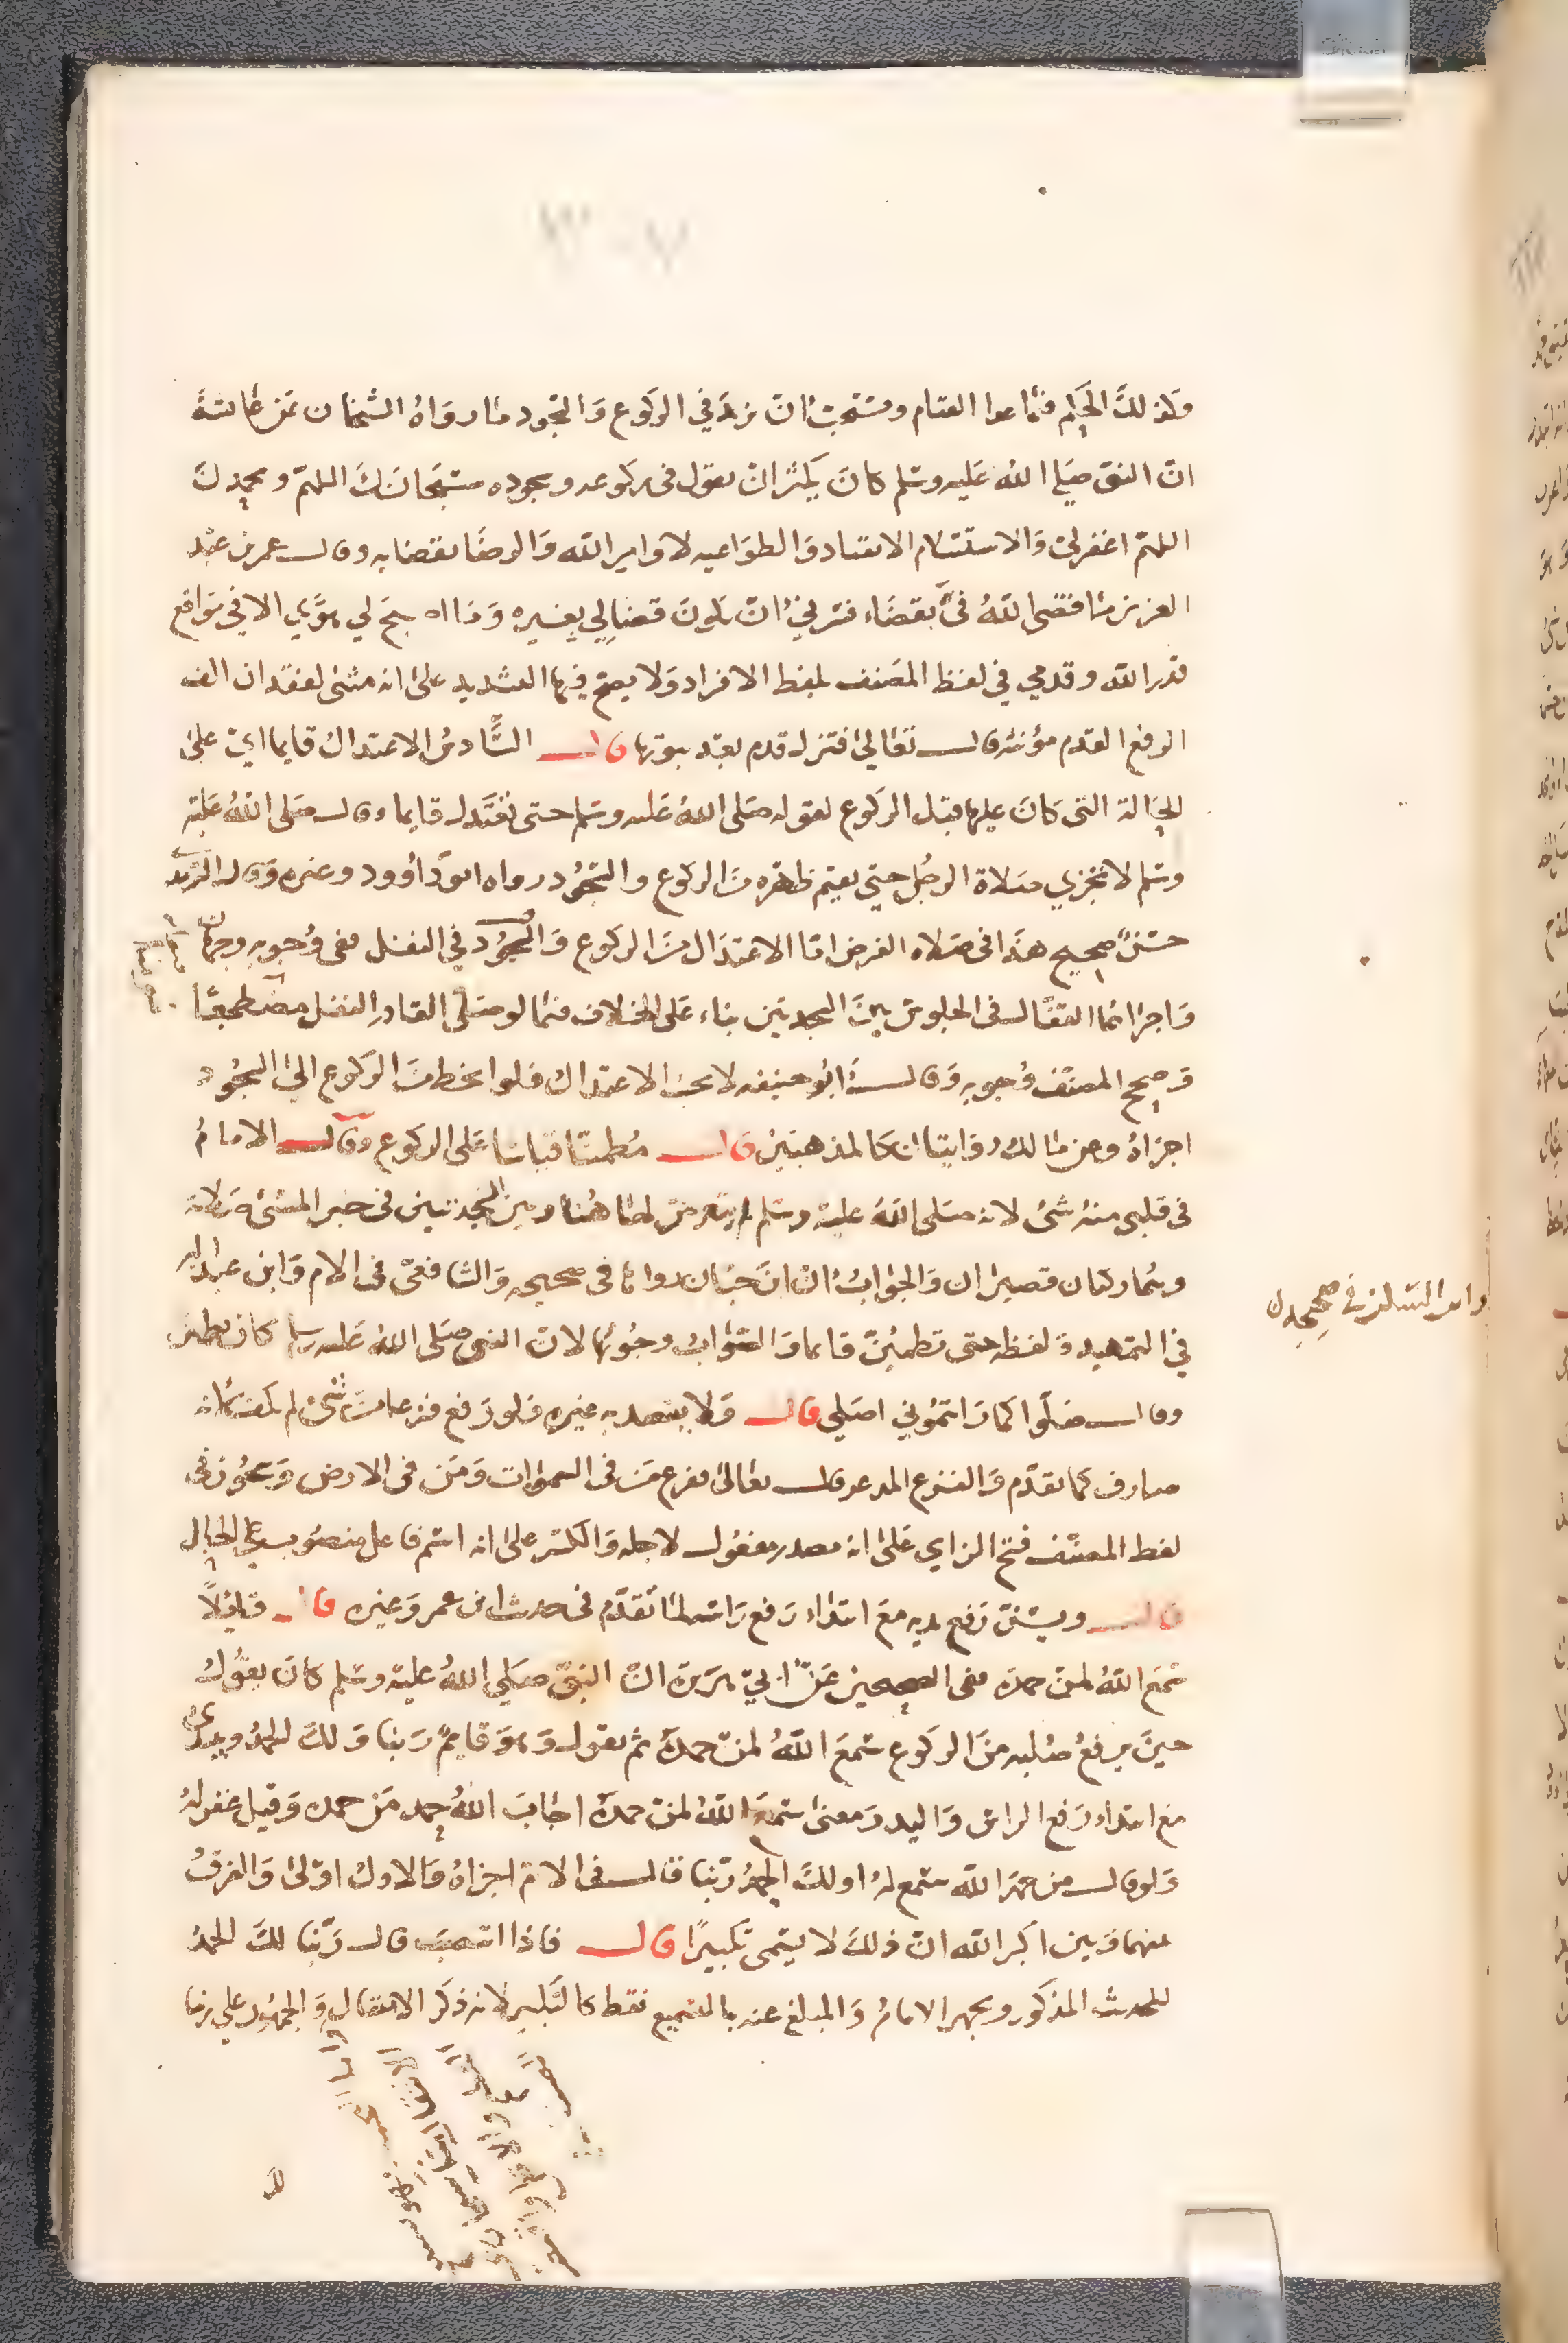 وكذلك الحكم فيما عدا القيام ويستحب ان يزيد في الركوع والسجود ما رواه الشيخان عن عائشة
ان النبي صلى الله عليه وسلم كان يكثر ان يقول في ركوعه وسجوده سبحانك اللهم وبحمدك
اللهم اغفر لي والاستسلام الانقياد والطواعيه لاوامر الله والرضا بقضايه وقال عمر بن عبد
العزيز ما قضى الله في بقضاء فسرني ان يكون قضى لي بغيره وما اصبح لي هوي الا في مواقع
قدر الله وقدمي في لفظ المصنف بلفظ الافراد ولا يصح فيها التشديد على انه مثنى لفقدان الف
الرفع القدم مؤنثه قال تعالى فتزل قدم بعد ثبوتها قال السادس الاعتدال قايما اي على
الحالة التي كان عليها قبل الركوع لقوله صلى الله عليه وسلم حتى تعتدل قايما وقال صلى الله عليه
وسلم لا تجزي صلاة الرجل حتى يقيم ظهره من الركوع والسجود رواه ابو داوود وغيره وقال الترمذي
حسن صحيح هذا في صلاه الفرض اما الاعتدال من الركوع والسجود في النفل ففي وجوبه وجهان
واجراهما القفال في الجلوس بين السجدتين بناء على الخلاف فيما لو صلى القادر النفل مضطجعا
وصحح المصنف وجوبه وقال ابو حنيفه لا يجب الاعتدال فلو انحط من الركوع الى السجود
اجزاه وعن مالك روايتان كالمذهبين قال مطمئنا قياسا على الركوع وقال الامام
في قلبي منه شئ لانه صلى الله عليه وسلم لم يتعرض لها هنا وبين السجدتين في خبر المسئ صلاته
وهما ركنان قصيران والجواب ان ابن حبان رواها في صحيحه والشافعي في الام وابن عبد البر
وابن السكن في صحيحه
في التمهيد ولفظه حتى تطمئن قايما والصواب وجوبها لان النبي صلى الله عليه وسلم كان يطمئن
وقال صلوا كما رايتموني اصلي قال ولا يقصد به غيره فلو رفع فزعا من شئ لم يكف لانه
صارف كما تقدم والفزع الذعر قال تعالى ففزع من في السموات ومن في الارض ويجوز في
لفظ المصنف فتح الزاي على انه مصدر مفعول لاجله والكسر على انه اسم فاعل منصوب على الحال
قال ويسن رفع يديه مع ابتداء رفع راسه لما تقدم في حديث ابن عمر وغيره قال قائلا
سمع الله لمن حمده ففي الصحيحين عن ابي هريرة ان النبي صلى الله عليه وسلم كان يقول
حين يرفع صلبه من الركوع سمع الله لمن حمده ثم يقول وهو قايم ربنا ولك الحمد ويبتدئ
مع ابتداء رفع الراس واليد ومعنى سمع الله لمن حمده اجاب الله حمد من حمده وقيل غفر له
ولو قال من حمد الله سمع له او لك الحمد ربنا قال في الام اجزاه والاول اولى والفرق
بينهما وبين اكبر الله ان ذلك لا يسمى تكبيرا قال فاذا انتصب قال ربنا لك الحمد
للحديث المذكور ويجهر الامام والمبلغ عنه بالتسميع فقط كالتكبير لانه ذكر الانتقال والجمهور على زيادة